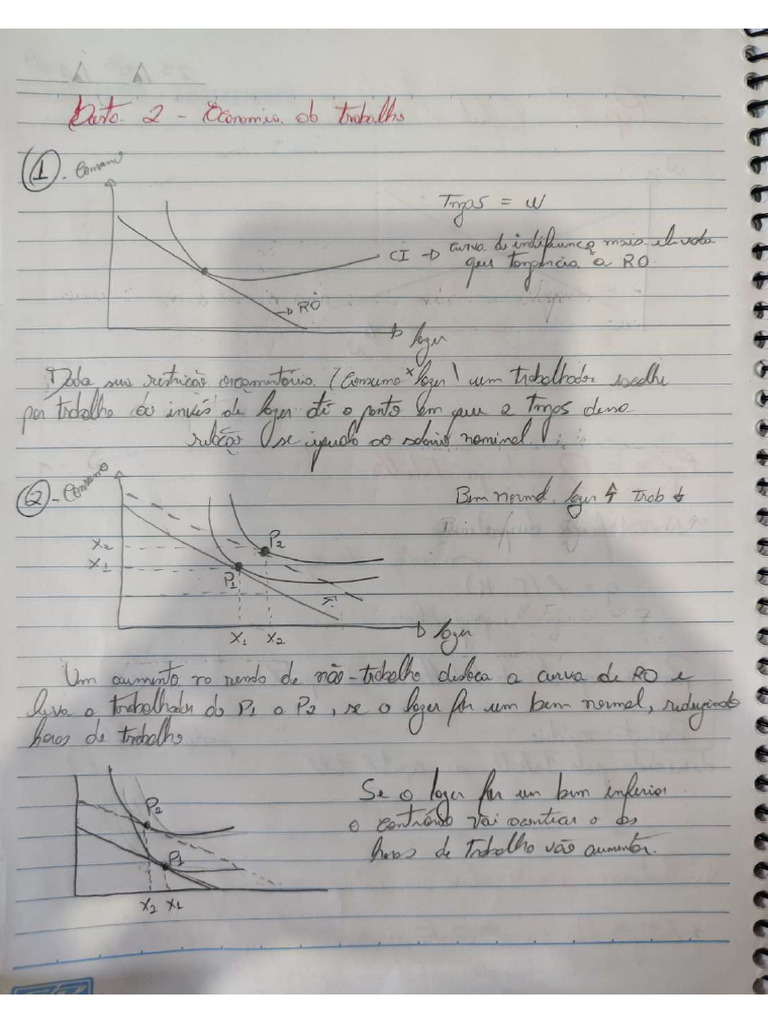 Lista 2 - Economia do trabalho
1 - Consumo
Tmgs = W
CI → curva de indiferença mais elevada
que tangência a RO
RO
lazer
Dada sua restrição orçamentária (Consumo x lazer) um trabalhador escolhe
por trabalho ao invés de lazer até o ponto em que a Tmgs dessa
relação se iguala ao salário nominal
2 - Consumo
Bem normal, lazer ↑ Trab ↓
X2
X1
P2
P1
X1 X2
lazer
Um aumento na renda de não-trabalho desloca a curva de RO e
leva o trabalhador do P1 a P2, se o lazer for um bem normal, reduzindo
horas de trabalho
P2
P1
X2 X1
Se o lazer for um bem inferior
o contrário vai acontecer o as
horas de trabalho vão aumentar.